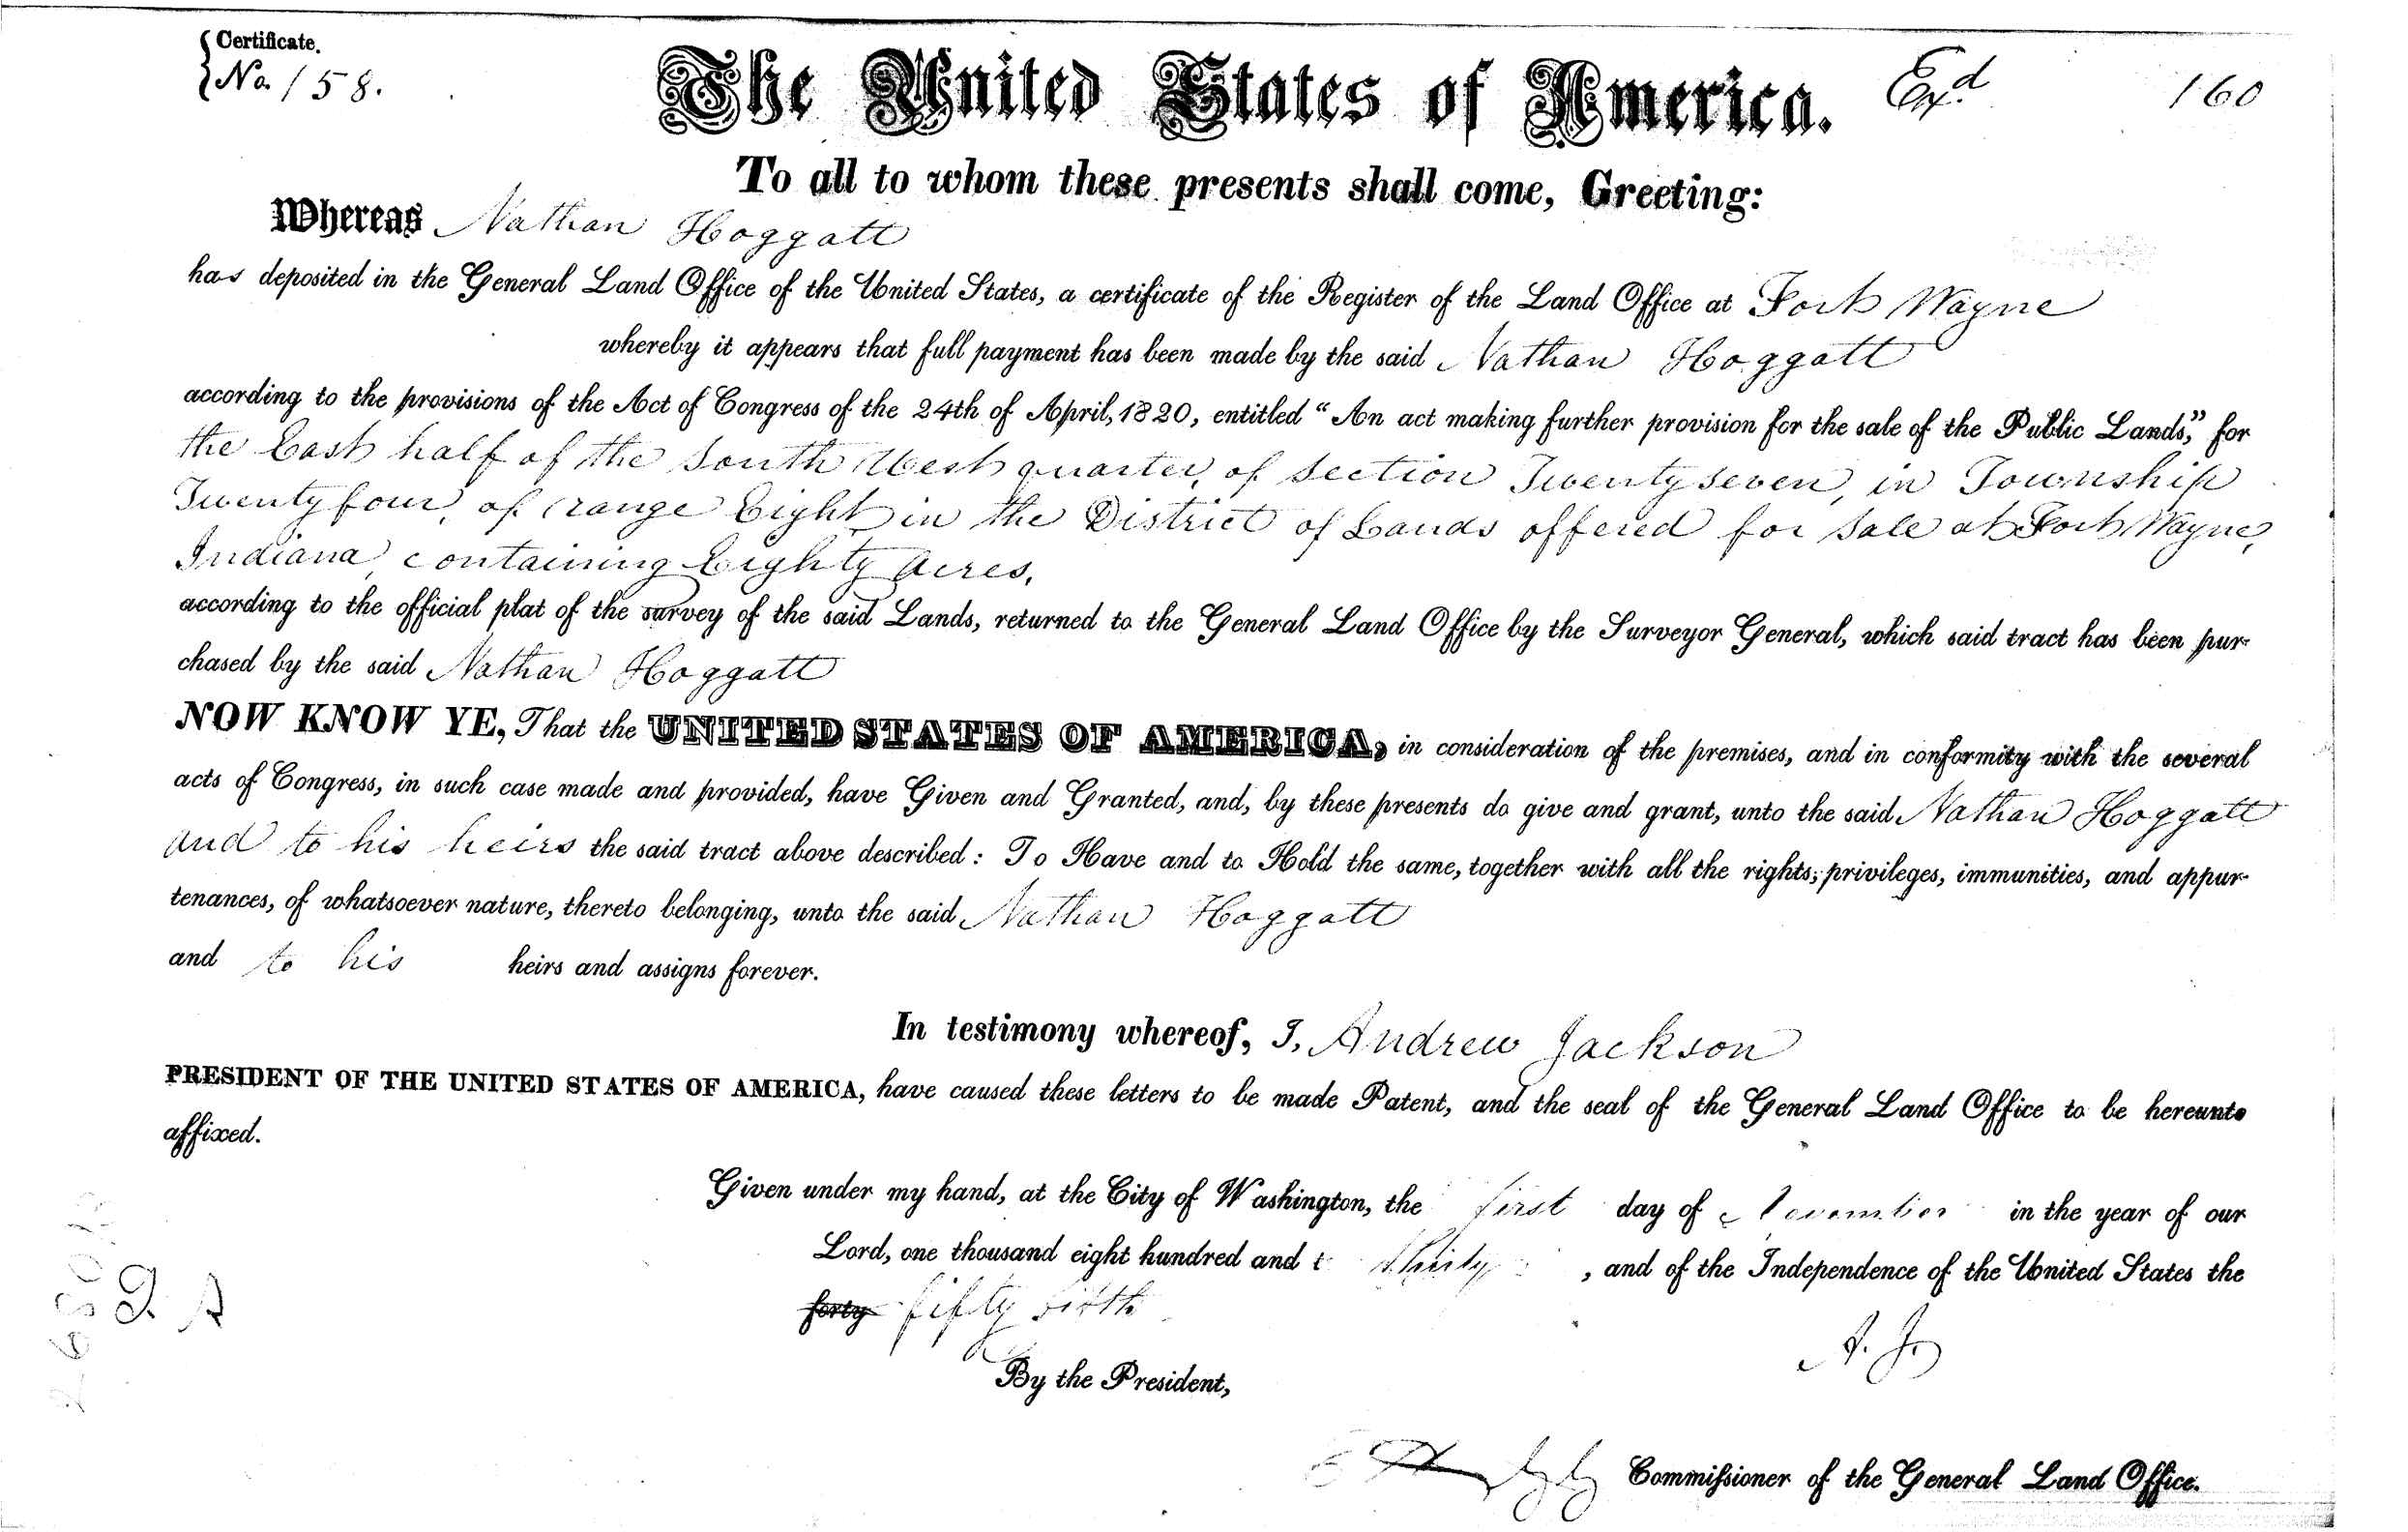 Certificate.
No. 158.
The United States of America.
Exd.
160
To all to whom these presents shall come, Greeting:
Whereas Nathan Hoggatt
has deposited in the General Land Office of the United States, a certificate of the Register of the Land Office at Fort Wayne
whereby it appears that full payment has been made by the said Nathan Hoggatt
according to the provisions of the Act of Congress of the 24th of April, 1820, entitled “An act making further provision for the sale of the Public Lands,” for
the East half of the South West quarter, of section Twenty seven, in Township
Twenty four, of range Eight, in the District of Lands offered for sale at Fort Wayne,
Indiana, containing Eighty acres,
according to the official plat of the survey of the said Lands, returned to the General Land Office by the Surveyor General, which said tract has been pur-
chased by the said Nathan Hoggatt
NOW KNOW YE, That the UNITED STATES OF AMERICA, in consideration of the premises, and in conformity with the several
acts of Congress, in such case made and provided, have Given and Granted, and, by these presents do give and grant, unto the said Nathan Hoggatt
and to his heirs the said tract above described: To Have and to Hold the same, together with all the rights, privileges, immunities, and appur-
tenances, of whatsoever nature, thereto belonging, unto the said Nathan Hoggatt
and to his heirs and assigns forever.
In testimony whereof, I, Andrew Jackson
PRESIDENT OF THE UNITED STATES OF AMERICA, have caused these letters to be made Patent, and the seal of the General Land Office to be hereunto
affixed.
Given under my hand, at the City of Washington, the first day of November in the year of our
Lord, one thousand eight hundred and t thirty , and of the Independence of the United States the
forty fifty sixth
A. J.
By the President,
Commissioner of the General Land Office.